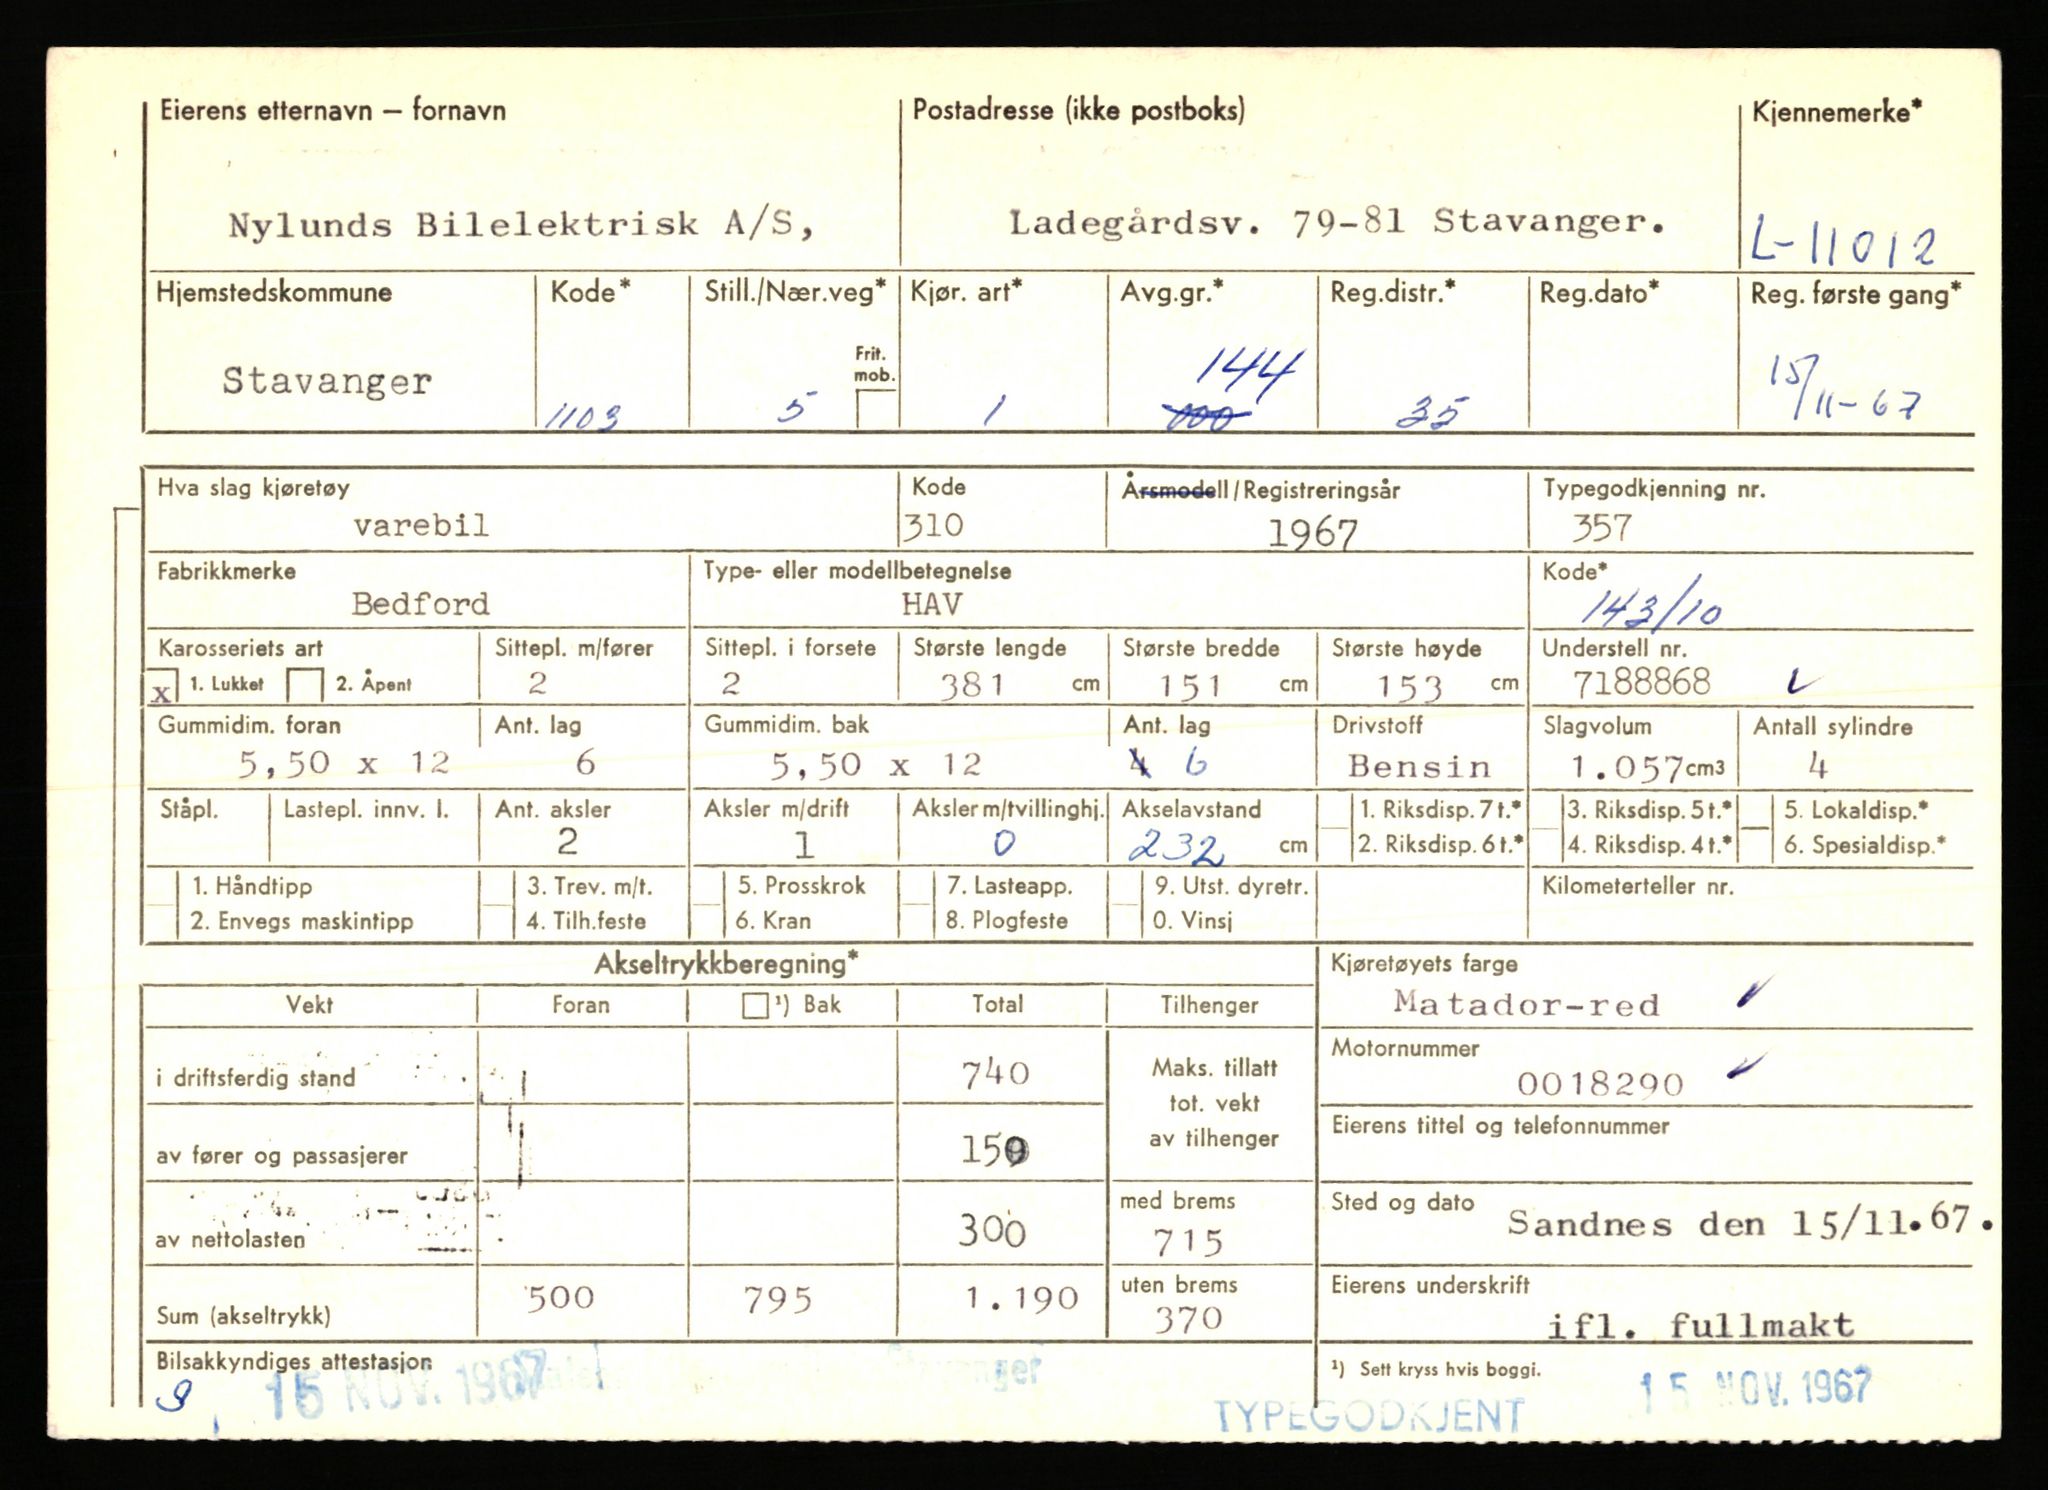 Eierens etternavn – fornavn Postadresse (ikke postboks) Kjennemerke*
Nylunds Bilelektrisk A/S, Ladegårdsv. 79-81 Stavanger. L-11012
Hjemstedskommune Kode* Still./Nær.veg* Kjør. art* Avg.gr.* Reg.distr.* Reg.dato* Reg. første gang*
Frit. mob.
Stavanger 1103 5 1 144 100 35 15/11-67
Hva slag kjøretøy Kode Årsmodell/Registreringsår Typegodkjenning nr.
varebil 310 1967 357
Fabrikkmerke Type- eller modellbetegnelse Kode*
Bedford HAV 143/10
Karosseriets art Sittepl. m/fører Sittepl. i forsete Største lengde Største bredde Største høyde Understell nr.
x 1. Lukket 2. Åpent 2 2 381 cm 151 cm 153 cm 7188868
Gummidim. foran Ant. lag Gummidim. bak Ant. lag Drivstoff Slagvolum Antall sylindre
5,50 x 12 6 5,50 x 12 4 6 Bensin 1.057 cm3 4
Ståpl. Lastepl. innv. l. Ant. aksler Aksler m/drift Aksler m/tvillinghj. Akselavstand 1. Riksdisp. 7 t.* 3. Riksdisp. 5 t.* 5. Lokaldisp.*
2 1 0 232 cm 2. Riksdisp. 6 t.* 4. Riksdisp. 4 t.* 6. Spesialdisp.*
1. Håndtipp 3. Trev. m/t. 5. Prosskrok 7. Lasteapp. 9. Utst. dyretr. Kilometerteller nr.
2. Envegs maskintipp 4. Tilh.feste 6. Kran 8. Plogfeste 0. Vinsj
Akseltrykkberegning* Kjøretøyets farge
Vekt Foran ¹) Bak Total Tilhenger Matador-red
i driftsferdig stand 740 Maks. tillatt tot. vekt av tilhenger Motornummer
0018290
av fører og passasjerer 150 Eierens tittel og telefonnummer
av nettolasten 300 med brems 715 Sted og dato Sandnes den 15/11.67.
Sum (akseltrykk) 500 795 1.190 uten brems 370 Eierens underskrift
ifl. fullmakt
Bilsakkyndiges attestasjon ¹) Sett kryss hvis boggi.
15 NOV. 1967 Stavanger 15 NOV. 1967
TYPEGODKJENT